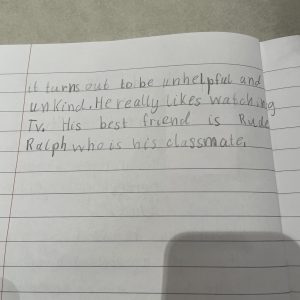 it turns out to be unhelpful and
unkind. He really likes watching
Tv. His best friend is Rude
Ralph who is his classmate.